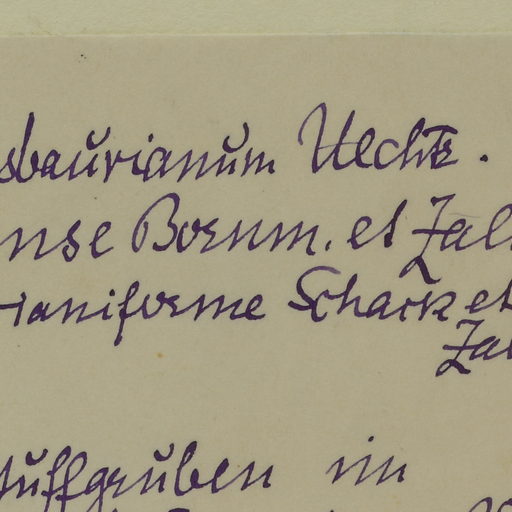 sbaurianum Uechtr.
nse Bornm. et Zal
taniforme Schack et
Za
tuffgruben im